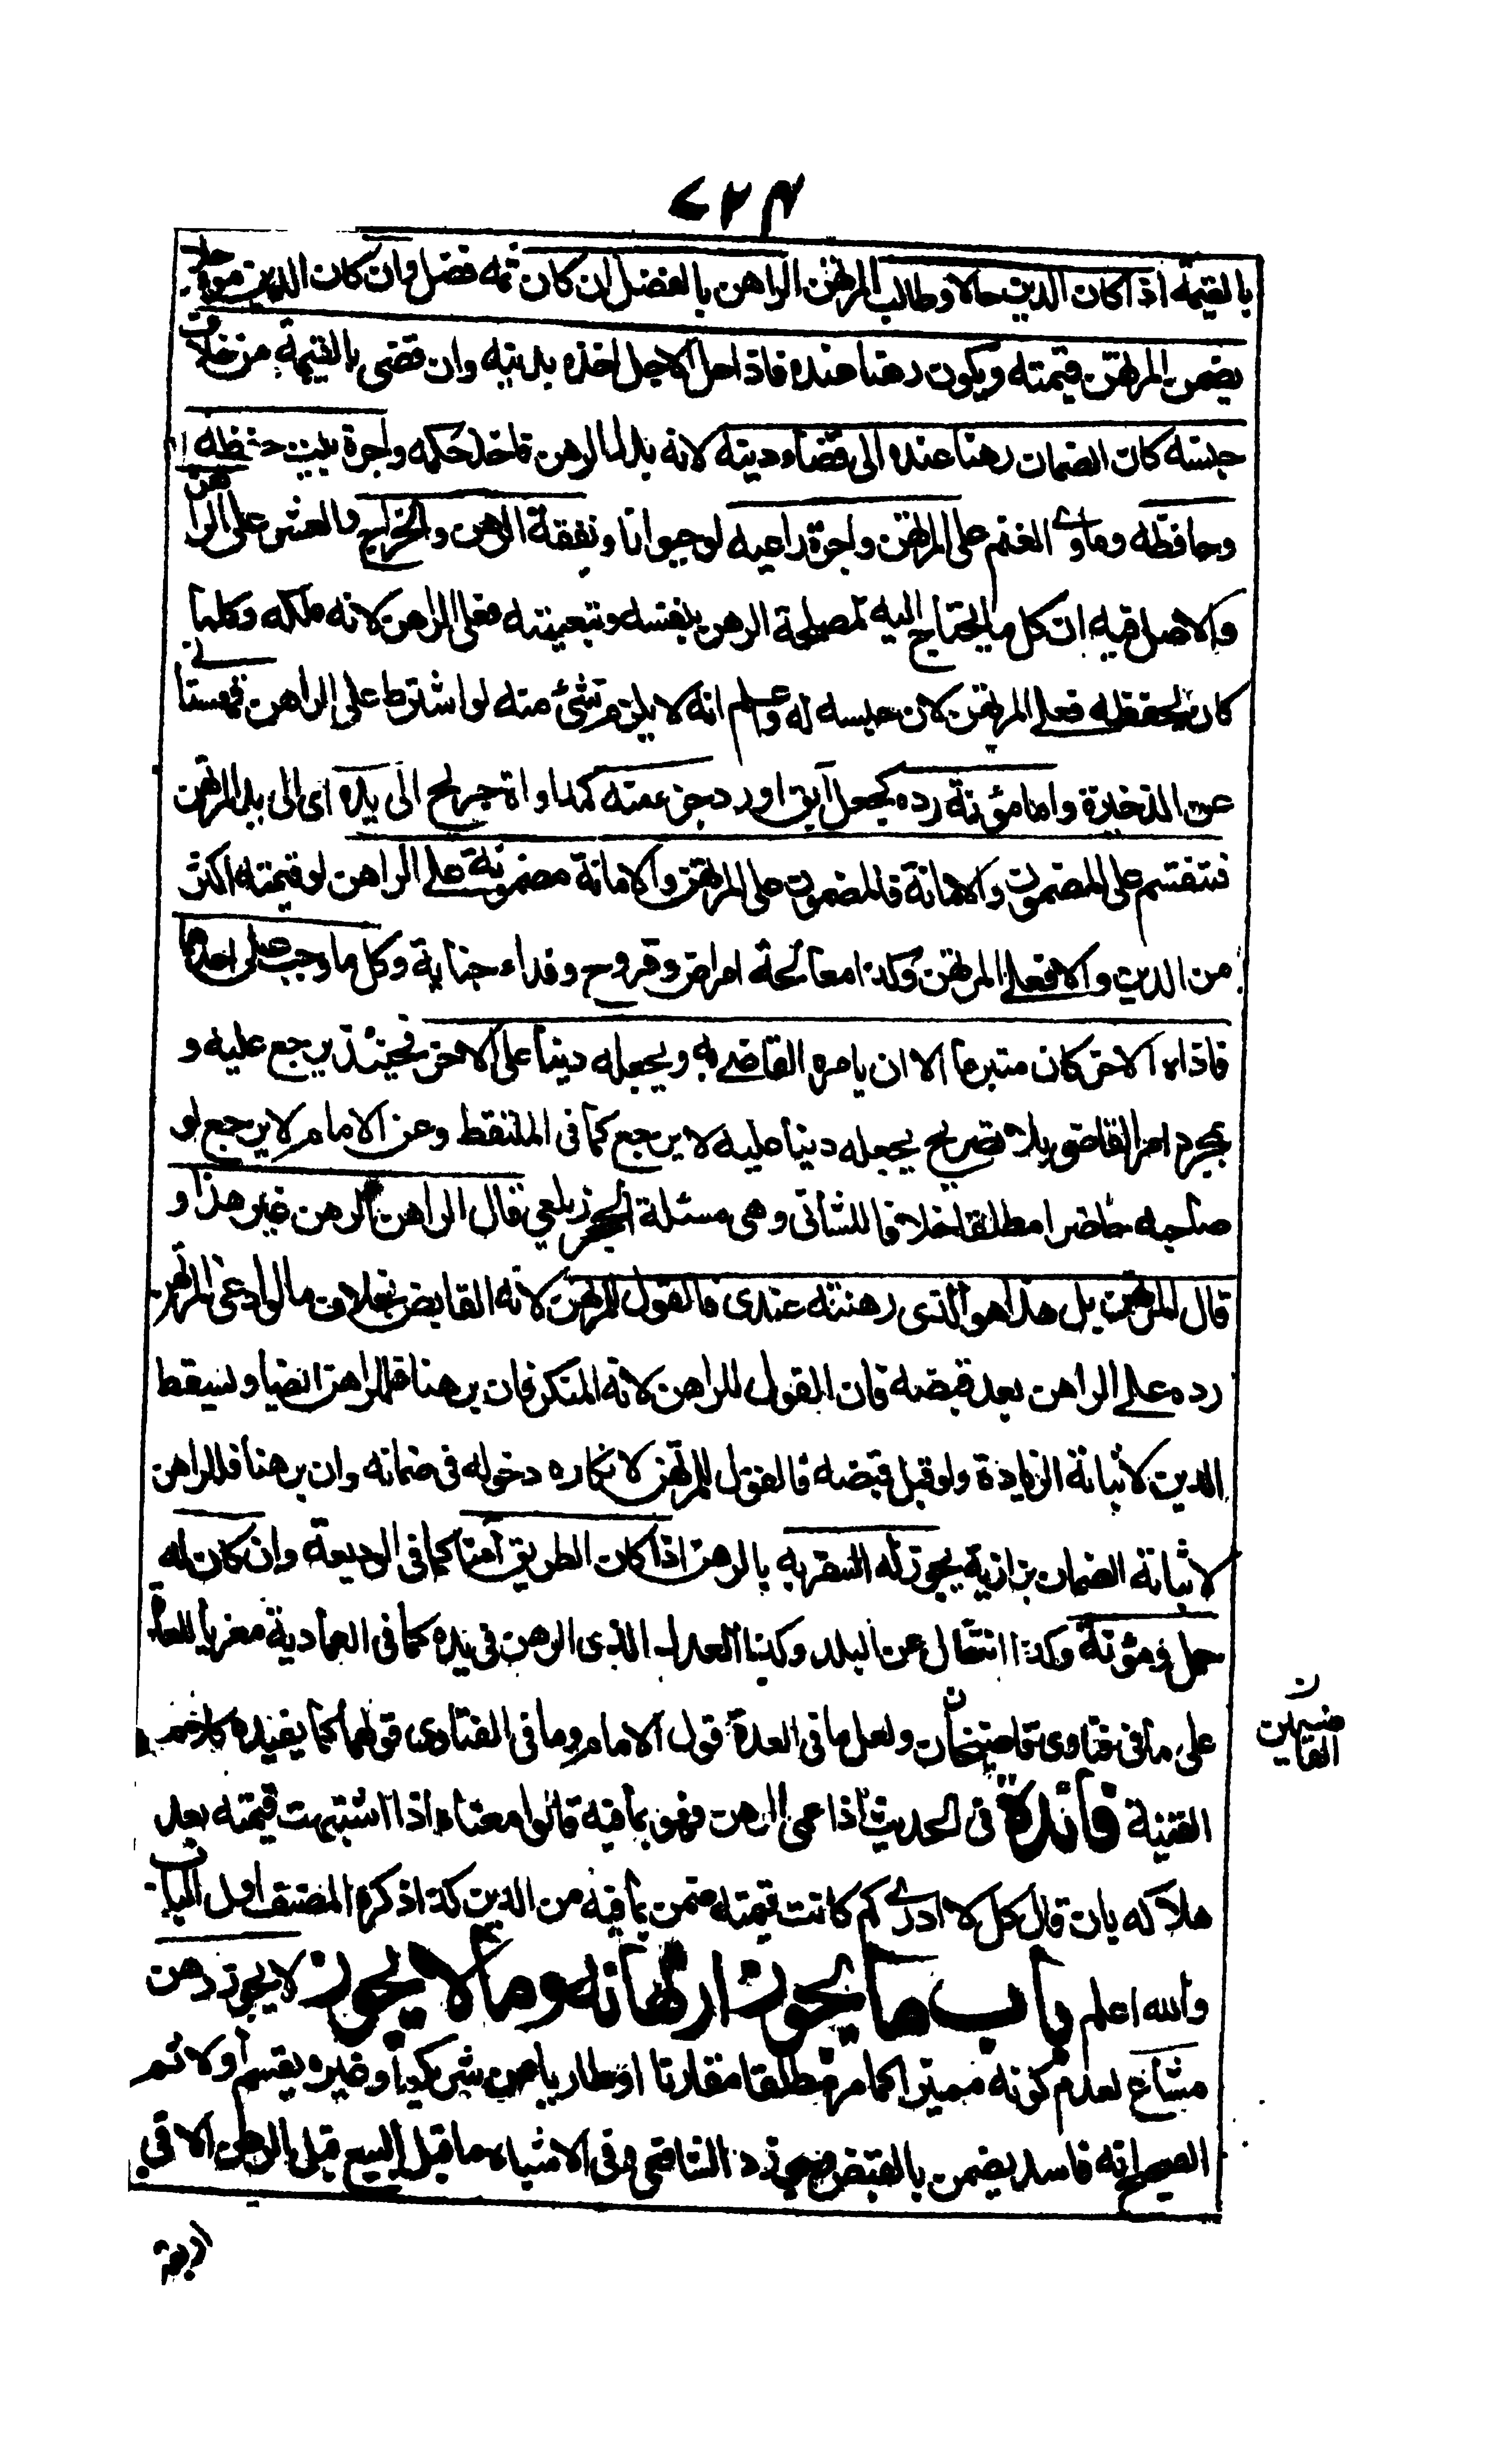 ٧٢٣
بالقيمة اذا كان الدين حالا وطالب المرتهن الراهن بالفضل ان كان ثمه فضل وان كان الدين موجلا
يضمن المرتهن قيمته ويكون رهنا عنده فاذا حل الاجل اخذه بدينه وان قضى بالقيمة من خلاف
جنسه كان الضمان رهنا عنده الى قضاء دينه لانه بدل الرهن فاخذ حكمه واجرة بيت حفظه
وحافظه وماوى الغنم على المرتهن واجرة راعيه لو حيوانا ونفقة الرهن والخراج والعشر على الراهن
والاصل فيه ان كل ما يحتاج اليه لمصلحة الرهن بنفسه وتبعيته فعلى الراهن لانه ملكه وكلما
كان لحفظه فعلى المرتهن لان حبسه له واعلم انه لا يلزم شئ منه لو اشترط على الراهن قهستانى
عن الذخيرة واما مؤنة رده كجعل آبق او رد جزء منه كمداواة جريح الى يده اى الى يد المرتهن
فتنقسم على المضمون والامانة فالمضمون على المرتهن والامانة مضمونة على الراهن لو قيمته اكثر
من الدين والا فعلى المرتهن وكذا معالجة امراض وقروح وفداء جناية وكل ما وجب على احدهما
فاداه الاخر كان متبرعا الا ان يامره القاضى به ويجعله دينا على الاخر فحينئذ يرجع عليه و
بمجرد امر القاضى بلا تصريح بجعله دينا عليه لا يرجع كما فى الملتقط وعن الامام لا يرجع لو
صاحبه حاضرا مطلقا خلافا للثانى وهى مسئلة الحجر زيلعي قال الراهن الرهن غير هذا و
قال المرتهن بل هذا هو الذى رهنته عندى فالقول للمرتهن لانه القابض بخلاف ما لو ادعى المرتهن
رده على الراهن بعد قبضه فان القول للراهن لانه المنكر فان برهنا فللراهن ايضا ويسقط
الدين لاثباته الزيادة ولو قبل قبضه فالقول للمرتهن لانكاره دخوله فى ضمانه وان برهنا فللراهن
لاثباته الضمان بزازية يجوز له السفر به بالرهن اذا كان الطريق آمنا كما فى الوديعة وان كان له
حمل ومؤنة وكذا انتقال عن البلد وكذا العدل الذى الرهن فى يده كما فى العمادية معزيا للعدة
على ما فى فتاوى قاضيخان ولعل ما فى العدة قول الامام وما فى الفتاوى قولهما كما يفيده كلام
القنية فائدة فى الحديث اذا عمى الرهن فهو بما فيه قالوا معناه اذا اشتبهت قيمته بعد
هلاكه بان قال كل لا ادرى كم كانت قيمته ضمن بما فيه من الدين كذا ذكره المصنف اول الباب
والله اعلم باب ما يجوز ارتهانه وما لا يجوز لا يجوز رهن
مشاع لعدم كونه مميزا كما مر مطلقا مقارنا او طاريا من شريكه او غيره يقسم اولا ثم
الصحيح انه فاسد يضمن بالقبض وجوزه الشافعى وفى الاشباه ما قبل البيع قبل الرهن الا فى